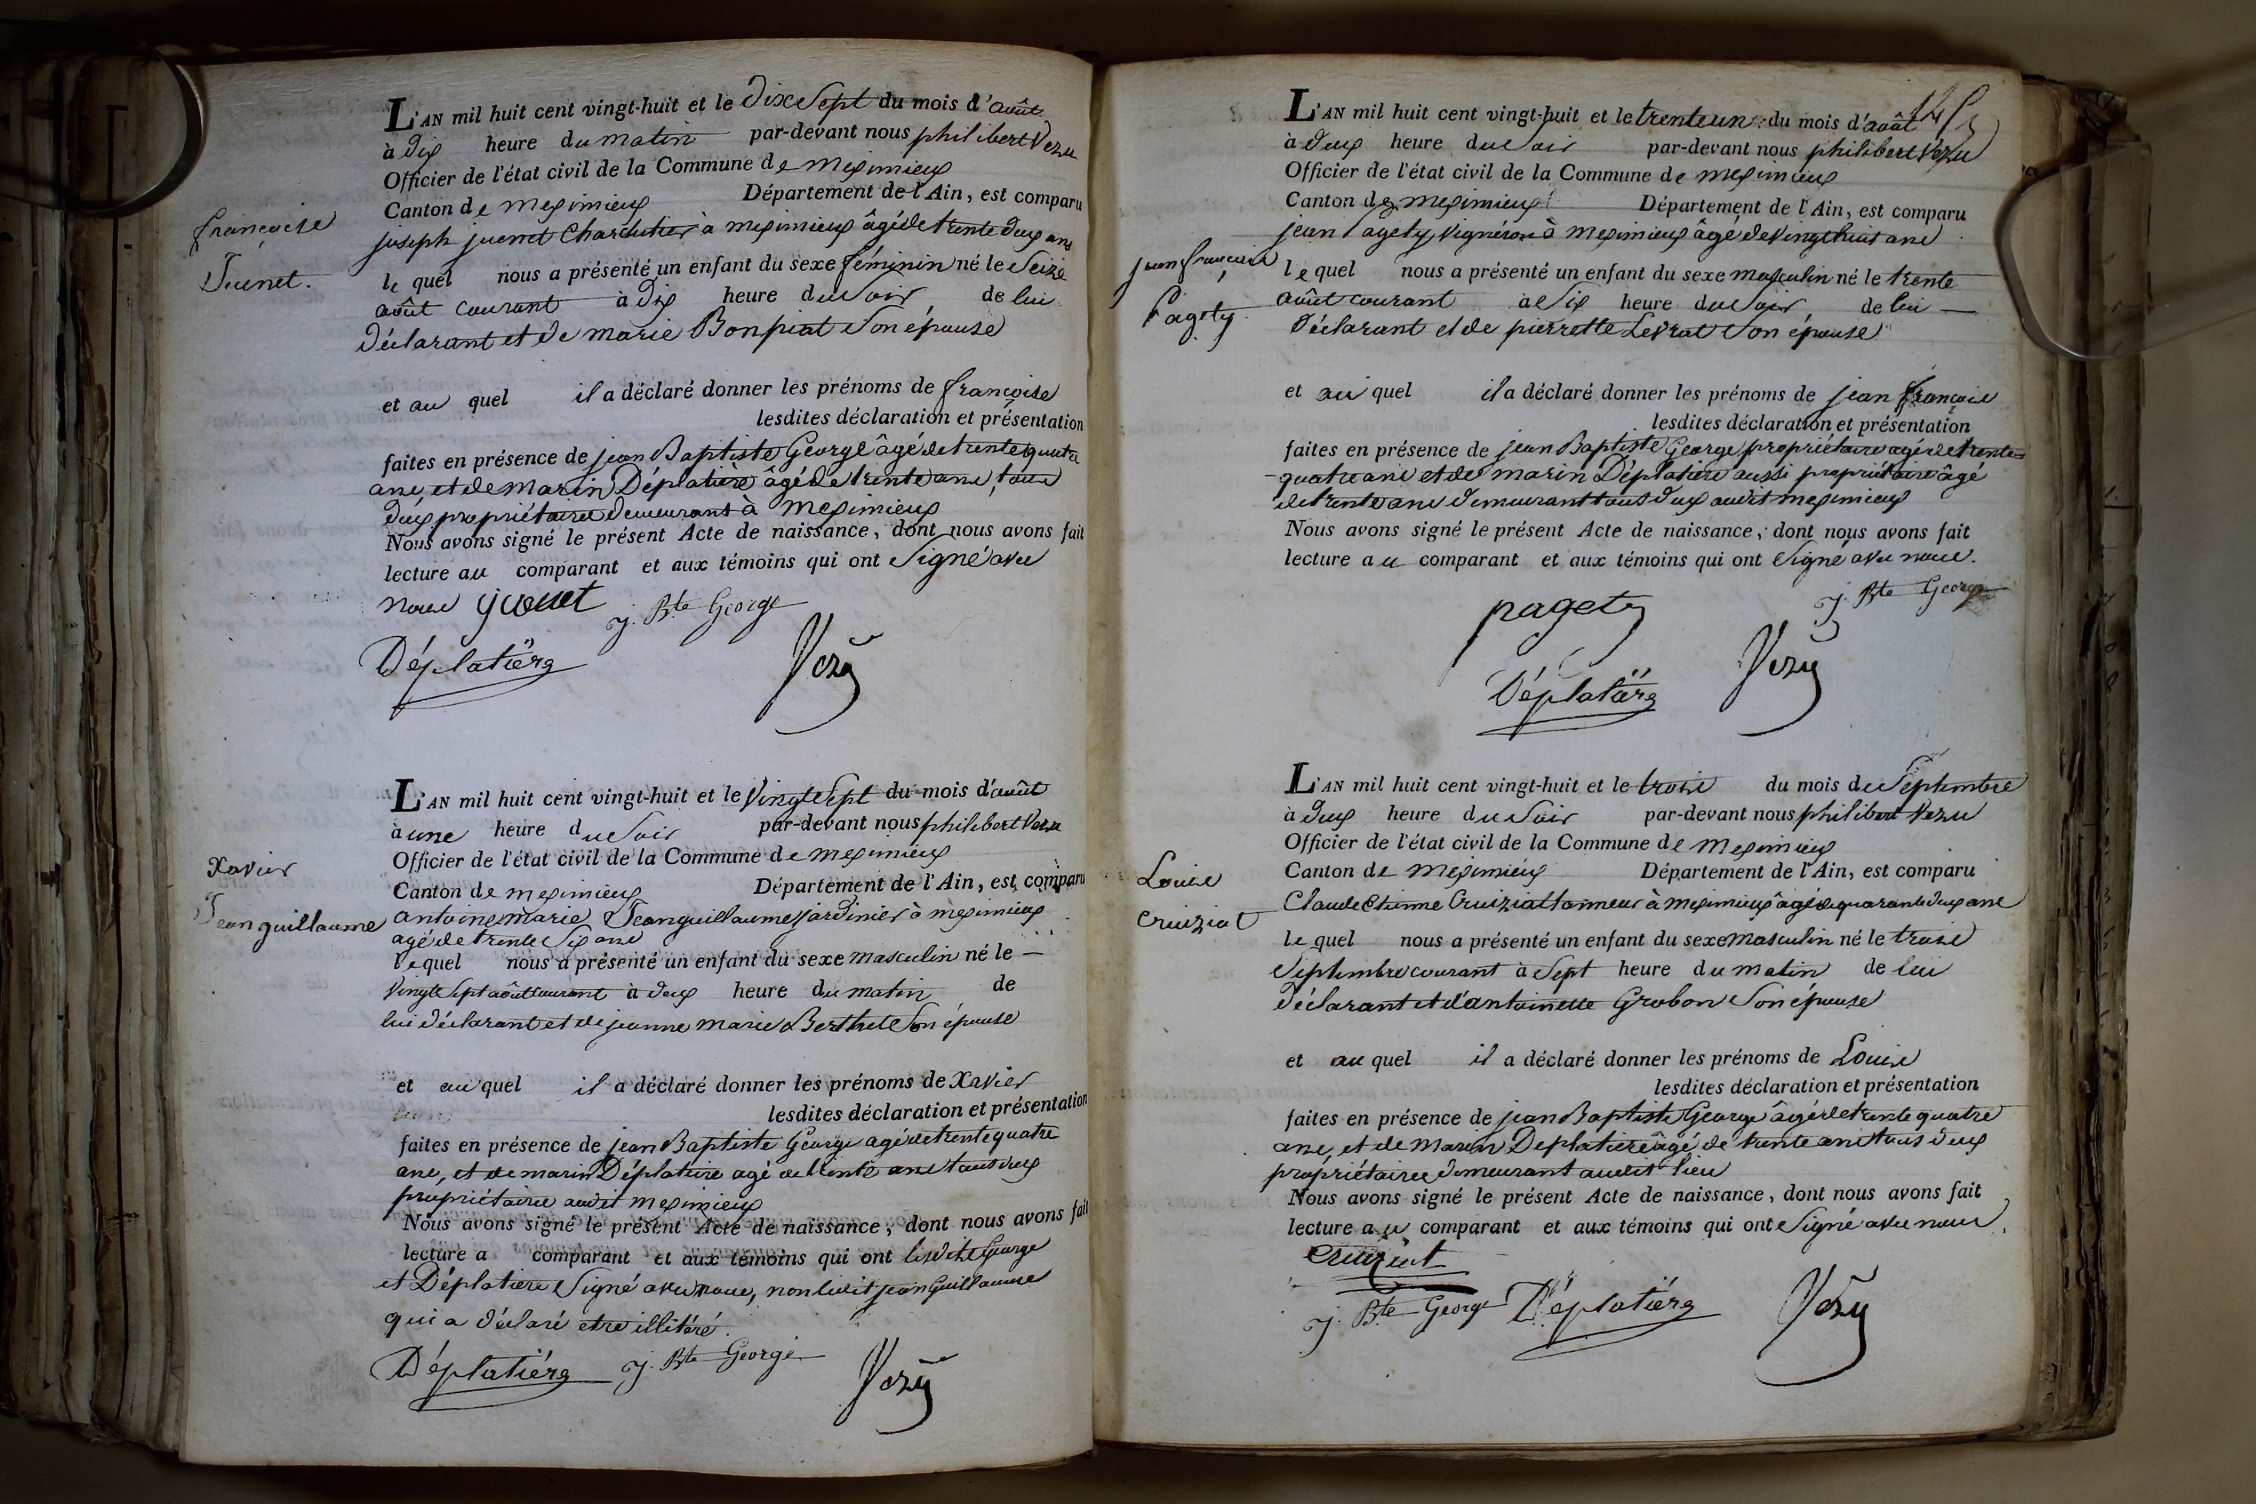 L'AN mil huit cent vingt-huit et le dix Sept du mois d'août
à dix heure du matin par-devant nous philibert Vezu
Officier de l'état civil de la Commune de meximieux
Canton de meximieux Département de l'Ain, est comparu
joseph juenet Charcutier à meximieux âgé de trente deux ans
le quel nous a présenté un enfant du sexe féminin né le Seize
août courant à dix heure du Soir de lui
Déclarant et de marie Bonpiat Son épouse
françoise
Juenet.
et au quel il a déclaré donner les prénoms de françoise
lesdites déclaration et présentation
faites en présence de jean Baptiste George âgé de trente quatre
ans, et de marin Déplatière âgé de trente ans, tous
deux propriétaires demeurant à meximieux
Nous avons signé le présent Acte de naissance, dont nous avons fait
lecture au comparant et aux témoins qui ont Signé avec
nous juenet j. Bte George
Déplatière Vezu
L'AN mil huit cent vingt-huit et le vingt Sept du mois d'août
à une heure du Soir par-devant nous philibert Vezu
Officier de l'état civil de la Commune de meximieux
Canton de meximieux Département de l'Ain, est comparu
antoine marie Jeanguillaume jardinier à meximieux
agé de trente Six ans
Xavier
Jeanguillaume
le quel nous a présenté un enfant du sexe masculin né le —
vingt Sept août courant à deux heure du matin de
lui déclarant et de jeanne marie Berthet Son épouse
et au quel il a déclaré donner les prénoms de Xavier
lesdites déclaration et présentation
faites en présence de jean Baptiste George agé de trente quatre
ans, et de marin Déplatière agé de trente ans tous deux
propriétaires audit meximieux
Nous avons signé le présent Acte de naissance, dont nous avons fait
lecture a comparant et aux témoins qui ont lesdits George
et Déplatière Signé avec nous, non ledit jeanguillaume
qui a déclaré etre illitéré.
Déplatière j. Bte George Vezu
L'AN mil huit cent vingt-huit et le trente un du mois d'août
à deux heure du Soir par-devant nous philibert Vezu
Officier de l'état civil de la Commune de meximieux
Canton de meximieux Département de l'Ain, est comparu
jean Pagety vignéron à meximieux âgé de vingt huit ans
jean françois
Pagety.
le quel nous a présenté un enfant du sexe masculin né le trente
août courant à Six heure du Soir de lui —
Déclarant et de pierrette Levrat Son épouse
et au quel il a déclaré donner les prénoms de jean françois
lesdites déclaration et présentation
faites en présence de jean Baptiste George propriétaire agé de trente
quatre ans et de marin Déplatière aussi propriétaire âgé
de trente ans demeurant tous deux audit meximieux
Nous avons signé le présent Acte de naissance, dont nous avons fait
lecture au comparant et aux témoins qui ont Signé avec nous.
pagety j. Bte George
Déplatière Vezu
L'AN mil huit cent vingt-huit et le trois du mois de Septembre
à deux heure du Soir par-devant nous philibert Vezu
Officier de l'état civil de la Commune de meximieux
Canton de meximieux Département de l'Ain, est comparu
Claude Etienne Cruiziat tanneur à meximieux âgé de quarante deux ans
Louise
Cruiziat
le quel nous a présenté un enfant du sexe masculin né le trois
Septembre courant à Sept heure du matin de lui
Déclarant et d'antoinette Grobon Son épouse
et au quel il a déclaré donner les prénoms de Louis
lesdites déclaration et présentation
faites en présence de jean Baptiste George âgé de trente quatre
ans, et de marin Deplatière âgé de trente ans tous deux
propriétaires demeurant audit lieu
Nous avons signé le présent Acte de naissance, dont nous avons fait
lecture au comparant et aux témoins qui ont Signé avec nous.
Cruiziat
j. Bte George Déplatière Vezu